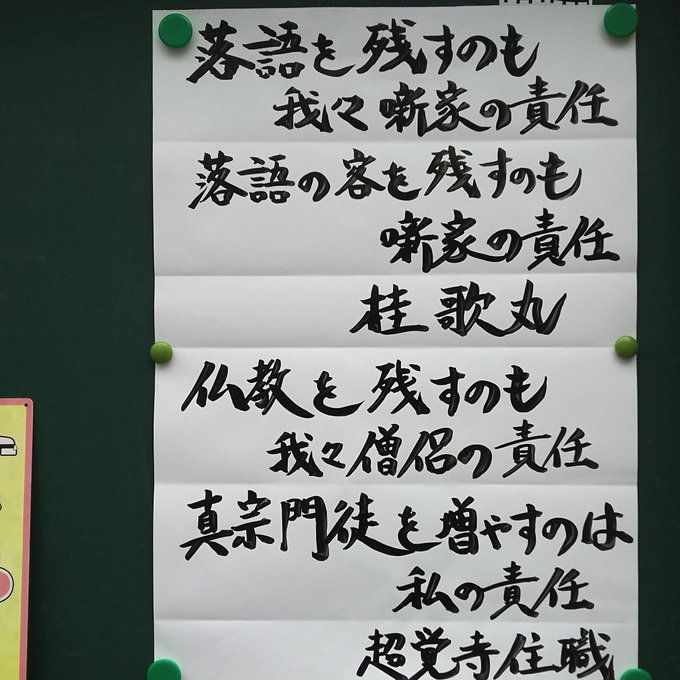 落語を残すのも
我々噺家の責任
落語の客を残すのも
噺家の責任
桂歌丸
仏教を残すのも
我々僧侶の責任
真宗門徒を増やすのは
私の責任
超覚寺住職